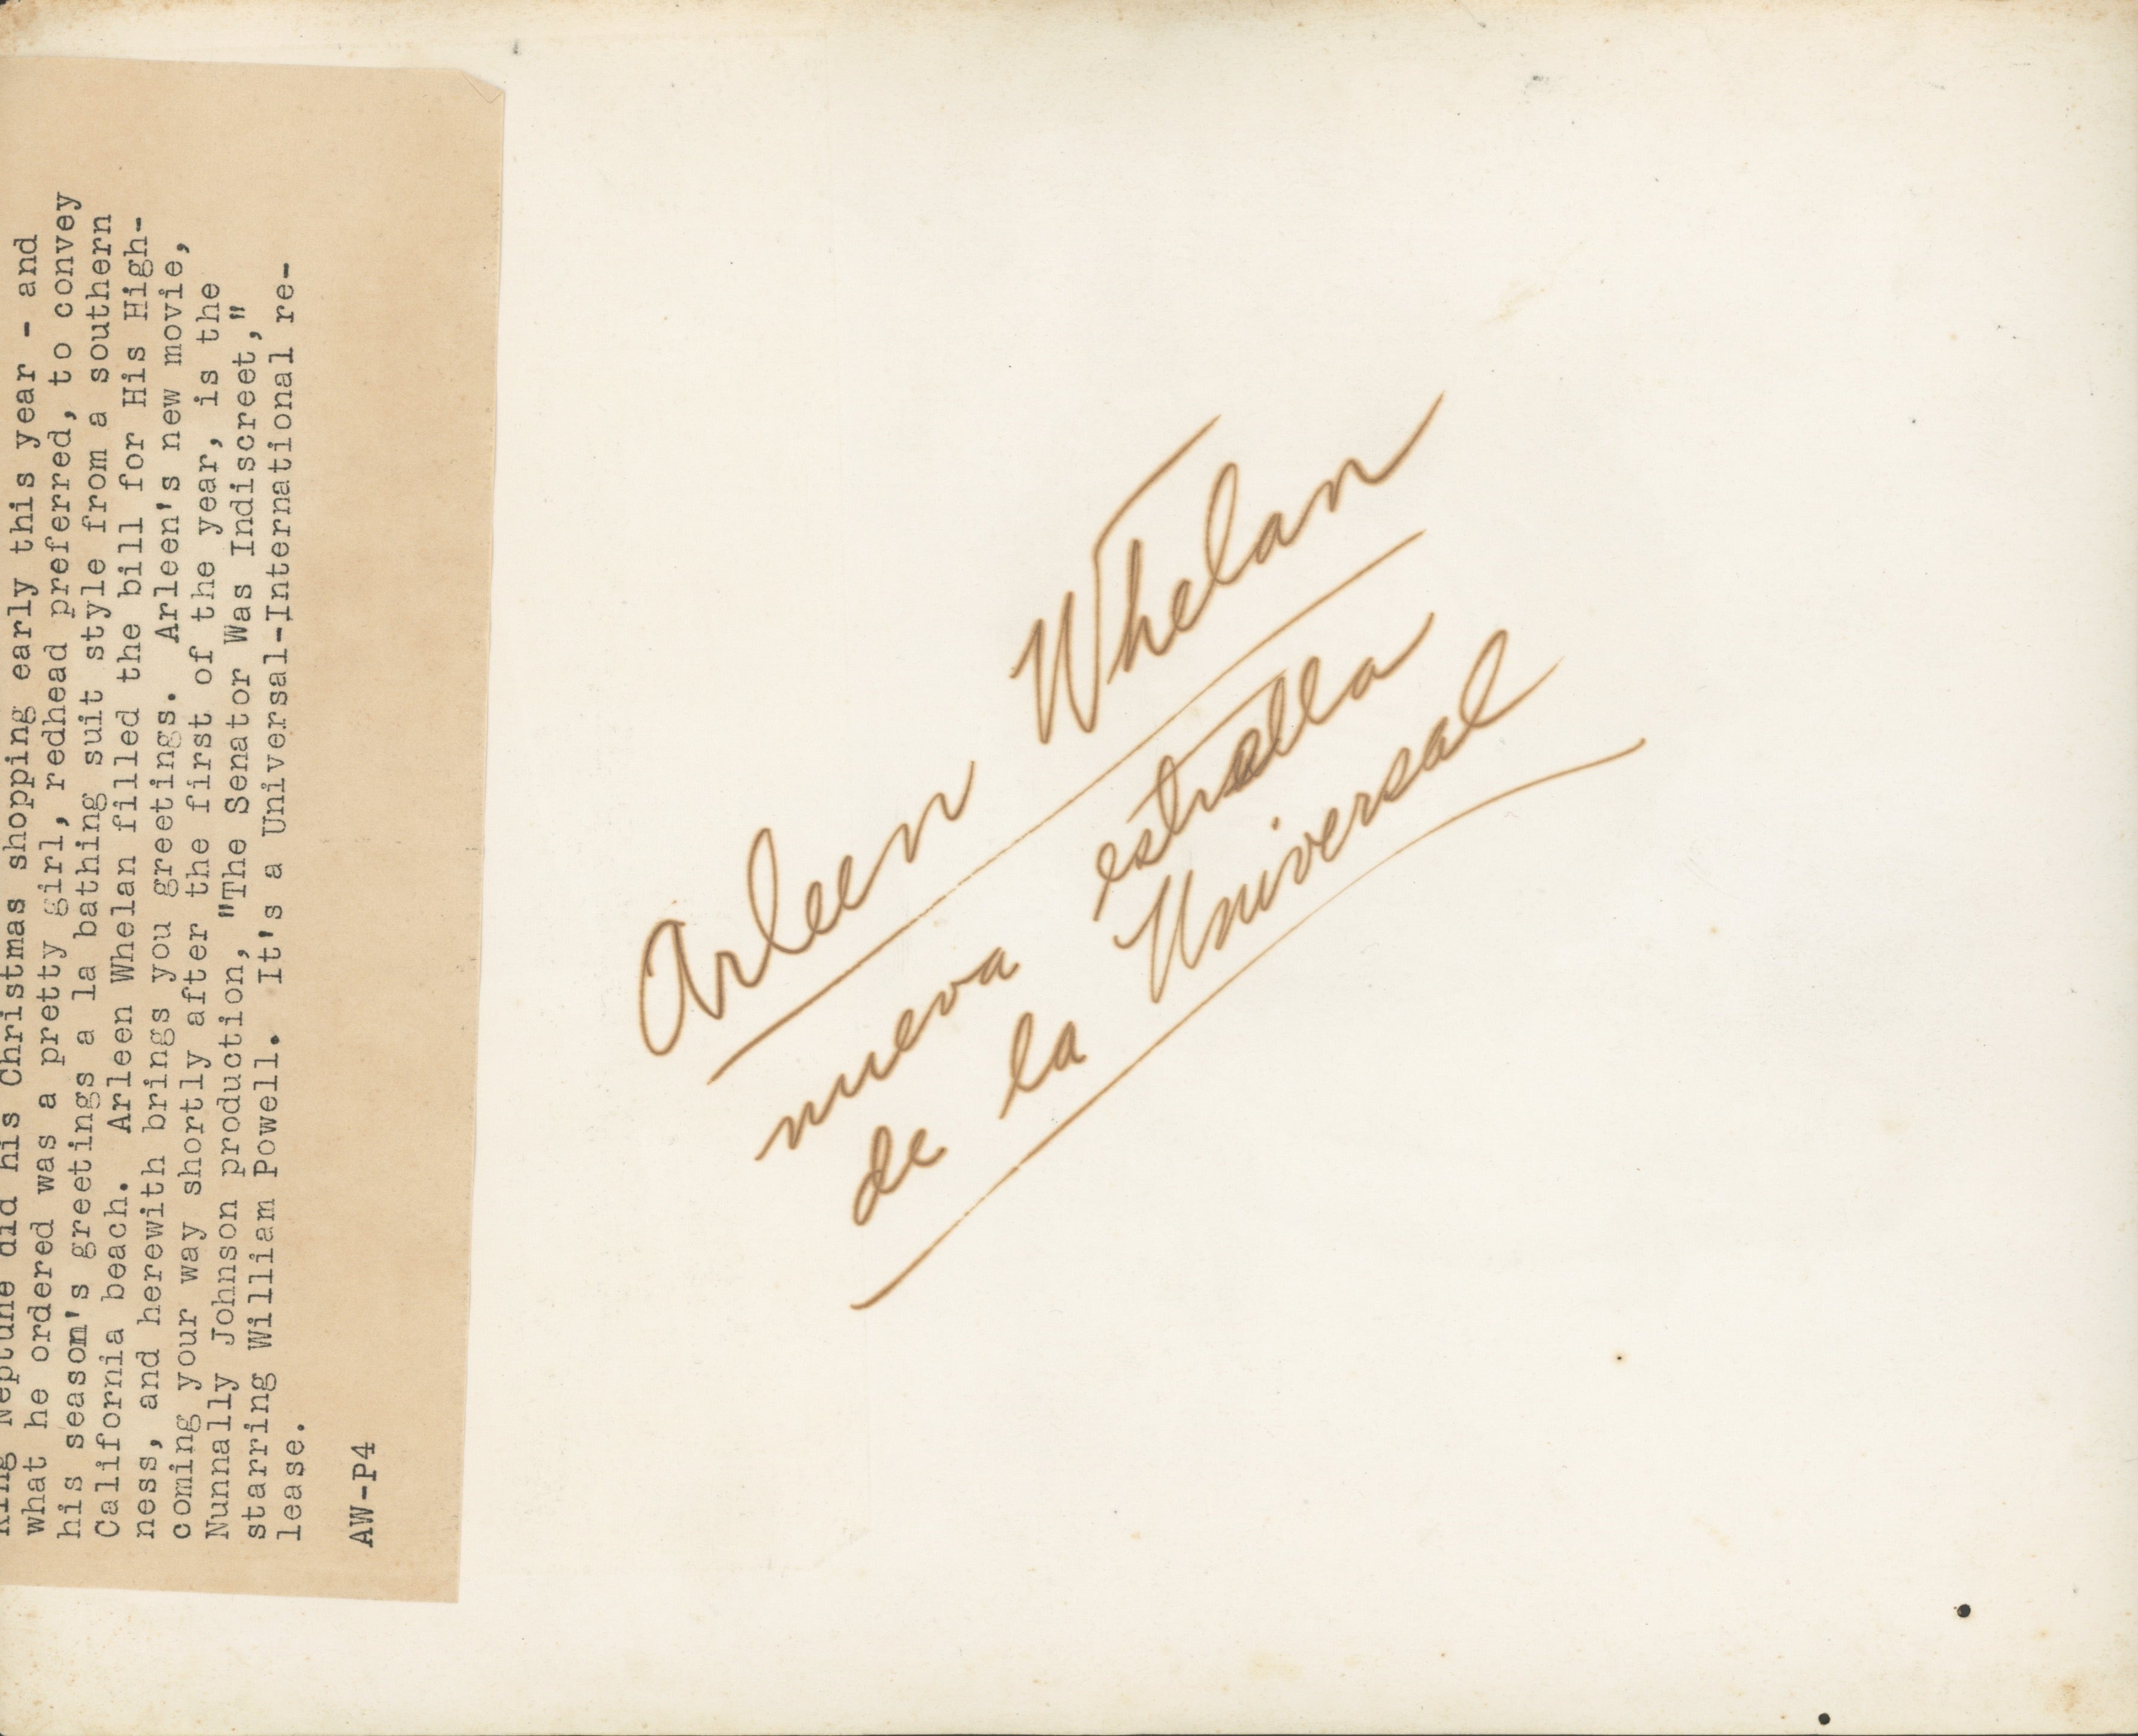 King Neptune did his Christmas shopping early this year - and
what he ordered was a pretty girl, redhead preferred, to convey
his season's greetings a la bathing suit style from a southern
California beach. Arleen Whelan filled the bill for His High-
ness, and herewith brings you greetings. Arleen's new movie,
coming your way shortly after the first of the year, is the
Nunnally Johnson production, "The Senator Was Indiscreet,"
starring William Powell. It's a Universal-International re-
lease.
AW-P4
Arleen Whelan
nueva estrella
de la Universal